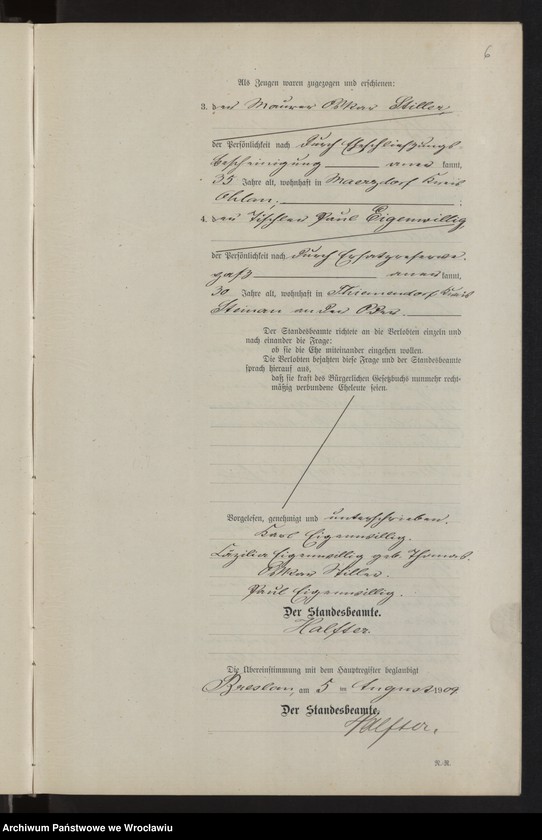 6
Als Zeugen waren zugezogen und erschienen:
3. der Maurer Oskar Stiller,
der Persönlichkeit nach durch Eheschließungs-
bescheinigung aner kannt,
35 Jahre alt, wohnhaft in Maerzdorf Kreis
Ohlau, ;
4. der Tischler Paul Eigenwillig,
der Persönlichkeit nach durch Ersatzreserve-
paß aner kannt,
30 Jahre alt, wohnhaft in Thiemendorf Kreis
Steinau an der Oder.
Der Standesbeamte richtete an die Verlobten einzeln und
nach einander die Frage:
ob sie die Ehe miteinander eingehen wollen.
Die Verlobten bejahten diese Frage und der Standesbeamte
sprach hierauf aus,
daß sie kraft des Bürgerlichen Gesetzbuchs nunmehr recht-
mäßig verbundene Eheleute seien.
Vorgelesen, genehmigt und unterschrieben.
Karl Eigenwillig.
Cäzilia Eigenwillig geb. Thomas.
Oskar Stiller.
Paul Eigenwillig.
Der Standesbeamte.
Halfter.
Die Übereinstimmung mit dem Hauptregister beglaubigt
Breslau, am 5 ten August 1909
Der Standesbeamte.
Halfter.
N.-R.
Archiwum Państwowe we Wrocławiu